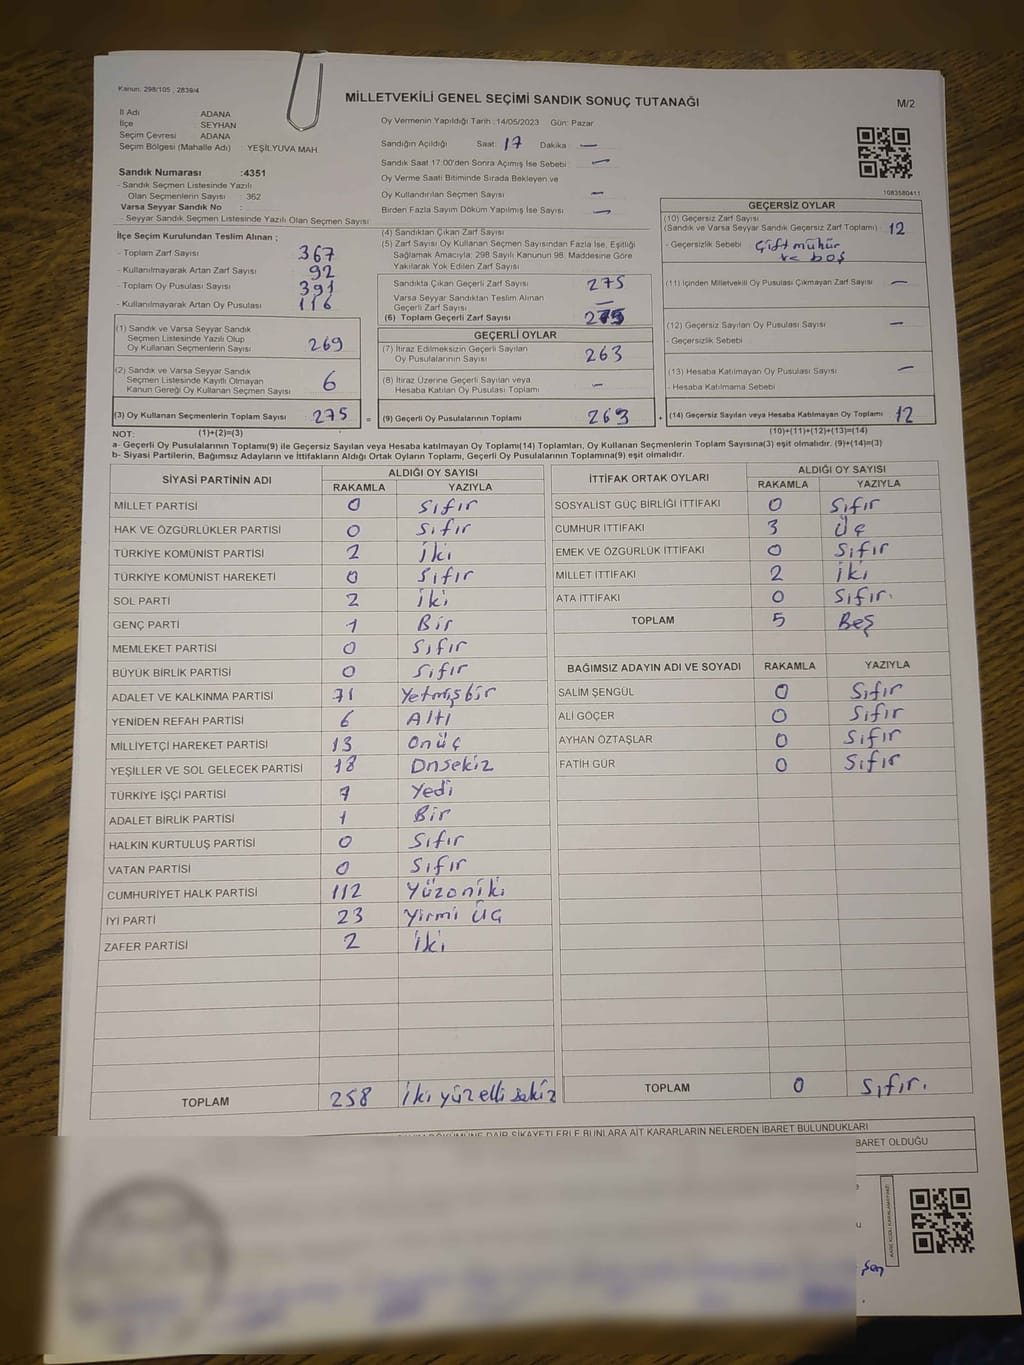 Kanun: 298/105 , 2839/4
MİLLETVEKİLİ GENEL SEÇİMİ SANDIK SONUÇ TUTANAĞI
M/2
İl Adı ADANA
İlçe SEYHAN
Seçim Çevresi ADANA
Seçim Bölgesi (Mahalle Adı) : YEŞİLYUVA MAH.
Sandık Numarası :4351
- Sandık Seçmen Listesinde Yazılı
Olan Seçmenlerin Sayısı : 362
Varsa Seyyar Sandık No :
- Seyyar Sandık Seçmen Listesinde Yazılı Olan Seçmen Sayısı
İlçe Seçim Kurulundan Teslim Alınan ;
- Toplam Zarf Sayısı 367
- Kullanılmayarak Artan Zarf Sayısı 92
- Toplam Oy Pusulası Sayısı 391
- Kullanılmayarak Artan Oy Pusulası 116
(1) Sandık ve Varsa Seyyar Sandık
Seçmen Listesinde Yazılı Olup
Oy Kullanan Seçmenlerin Sayısı 269
(2) Sandık ve Varsa Seyyar Sandık
Seçmen Listesinde Kayıtlı Olmayan
Kanun Gereği Oy Kullanan Seçmen Sayısı 6
(3) Oy Kullanan Seçmenlerin Toplam Sayısı 275 =
Oy Vermenin Yapıldığı Tarih :14/05/2023 Gün: Pazar
Sandığın Açıldığı Saat: 17 Dakika : —
Sandık Saat 17:00'den Sonra Açımış İse Sebebi : —
Oy Verme Saati Bitiminde Sırada Bekleyen ve
Oy Kullandırılan Seçmen Sayısı —
Birden Fazla Sayım Döküm Yapılmış İse Sayısı —
(4) Sandıktan Çıkan Zarf Sayısı
(5) Zarf Sayısı Oy Kullanan Seçmen Sayısından Fazla İse, Eşitliği
Sağlamak Amacıyla; 298 Sayılı Kanunun 98. Maddesine Göre
Yakılarak Yok Edilen Zarf Sayısı
Sandıkta Çıkan Geçerli Zarf Sayısı 275
Varsa Seyyar Sandıktan Teslim Alınan
Geçerli Zarf Sayısı —
(6) Toplam Geçerli Zarf Sayısı 275
GEÇERLİ OYLAR
(7) İtiraz Edilmeksizin Geçerli Sayılan
Oy Pusulalarının Sayısı 263
(8) İtiraz Üzerine Geçerli Sayılan veya
Hesaba Katılan Oy Pusulası Toplamı —
(9) Geçerli Oy Pusulalarının Toplamı 263 +
1083580411
GEÇERSİZ OYLAR
(10) Geçersiz Zarf Sayısı
(Sandık ve Varsa Seyyar Sandık Geçersiz Zarf Toplamı) 12
- Geçersizlik Sebebi Çift mühür
ve boş
(11) İçinden Milletvekili Oy Pusulası Çıkmayan Zarf Sayısı —
(12) Geçersiz Sayılan Oy Pusulası Sayısı —
- Geçersizlik Sebebi
(13) Hesaba Katılmayan Oy Pusulası Sayısı —
- Hesaba Katılmama Sebebi
(14) Geçersiz Sayılan veya Hesaba Katılmayan Oy Toplamı 12
NOT: (1)+(2)=(3) (10)+(11)+(12)+(13)=(14)
a- Geçerli Oy Pusulalarının Toplamı(9) ile Geçersiz Sayılan veya Hesaba katılmayan Oy Toplamı(14) Toplamları, Oy Kullanan Seçmenlerin Toplam Sayısına(3) eşit olmalıdır. (9)+(14)=(3)
b- Siyasi Partilerin, Bağımsız Adayların ve İttifakların Aldığı Ortak Oyların Toplamı, Geçerli Oy Pusulalarının Toplamına(9) eşit olmalıdır.
SİYASİ PARTİNİN ADI ALDIĞI OY SAYISI
RAKAMLA YAZIYLA
MİLLET PARTİSİ 0 Sıfır
HAK VE ÖZGÜRLÜKLER PARTİSİ 0 Sıfır
TÜRKİYE KOMÜNİST PARTİSİ 2 İki
TÜRKİYE KOMÜNİST HAREKETİ 0 Sıfır
SOL PARTİ 2 İki
GENÇ PARTİ 1 Bir
MEMLEKET PARTİSİ 0 Sıfır
BÜYÜK BİRLİK PARTİSİ 0 Sıfır
ADALET VE KALKINMA PARTİSİ 71 Yetmişbir
YENİDEN REFAH PARTİSİ 6 Altı
MİLLİYETÇİ HAREKET PARTİSİ 13 Onüç
YEŞİLLER VE SOL GELECEK PARTİSİ 18 Onsekiz
TÜRKİYE İŞÇİ PARTİSİ 7 Yedi
ADALET BİRLİK PARTİSİ 1 Bir
HALKIN KURTULUŞ PARTİSİ 0 Sıfır
VATAN PARTİSİ 0 Sıfır
CUMHURİYET HALK PARTİSİ 112 Yüzoniki
İYİ PARTİ 23 Yirmi Üç
ZAFER PARTİSİ 2 İki
TOPLAM 258 İki yüz elli sekiz
İTTİFAK ORTAK OYLARI ALDIĞI OY SAYISI
RAKAMLA YAZIYLA
SOSYALİST GÜÇ BİRLİĞİ İTTİFAKI 0 Sıfır
CUMHUR İTTİFAKI 3 Üç
EMEK VE ÖZGÜRLÜK İTTİFAKI 0 Sıfır
MİLLET İTTİFAKI 2 İki
ATA İTTİFAKI 0 Sıfır.
TOPLAM 5 Beş
BAĞIMSIZ ADAYIN ADI VE SOYADI RAKAMLA YAZIYLA
SALİM ŞENGÜL 0 Sıfır
ALİ GÖÇER 0 Sıfır
AYHAN ÖZTAŞLAR 0 Sıfır
FATİH GÜR 0 Sıfır
TOPLAM 0 Sıfır.
DÖKÜMÜNE DAİR ŞİKAYETLERLE BUNLARA AİT KARARLARIN NELERDEN İBARET BULUNDUKLARI
BARET OLDUĞU